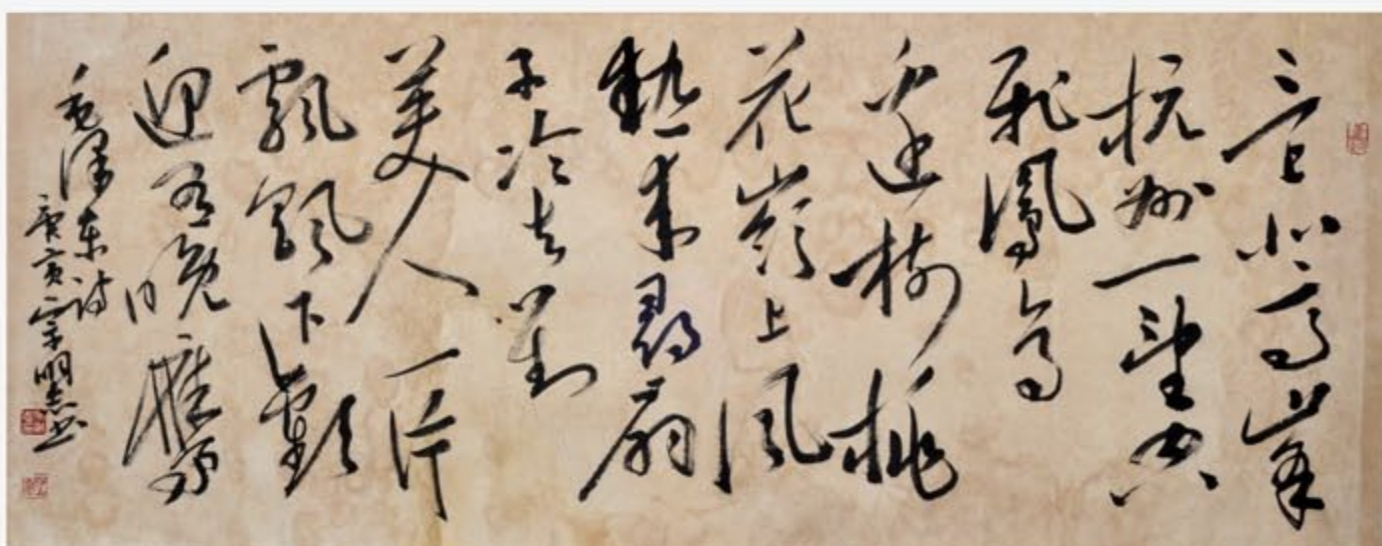 三上北高峰
杭州一望空
飛鳳亭
邊樹桃
花嶺上風
熱來尋扇
子冷去對
美人一片
飄飄下歡
迎有晚鷹
毛澤東詩
庚寅 明志书